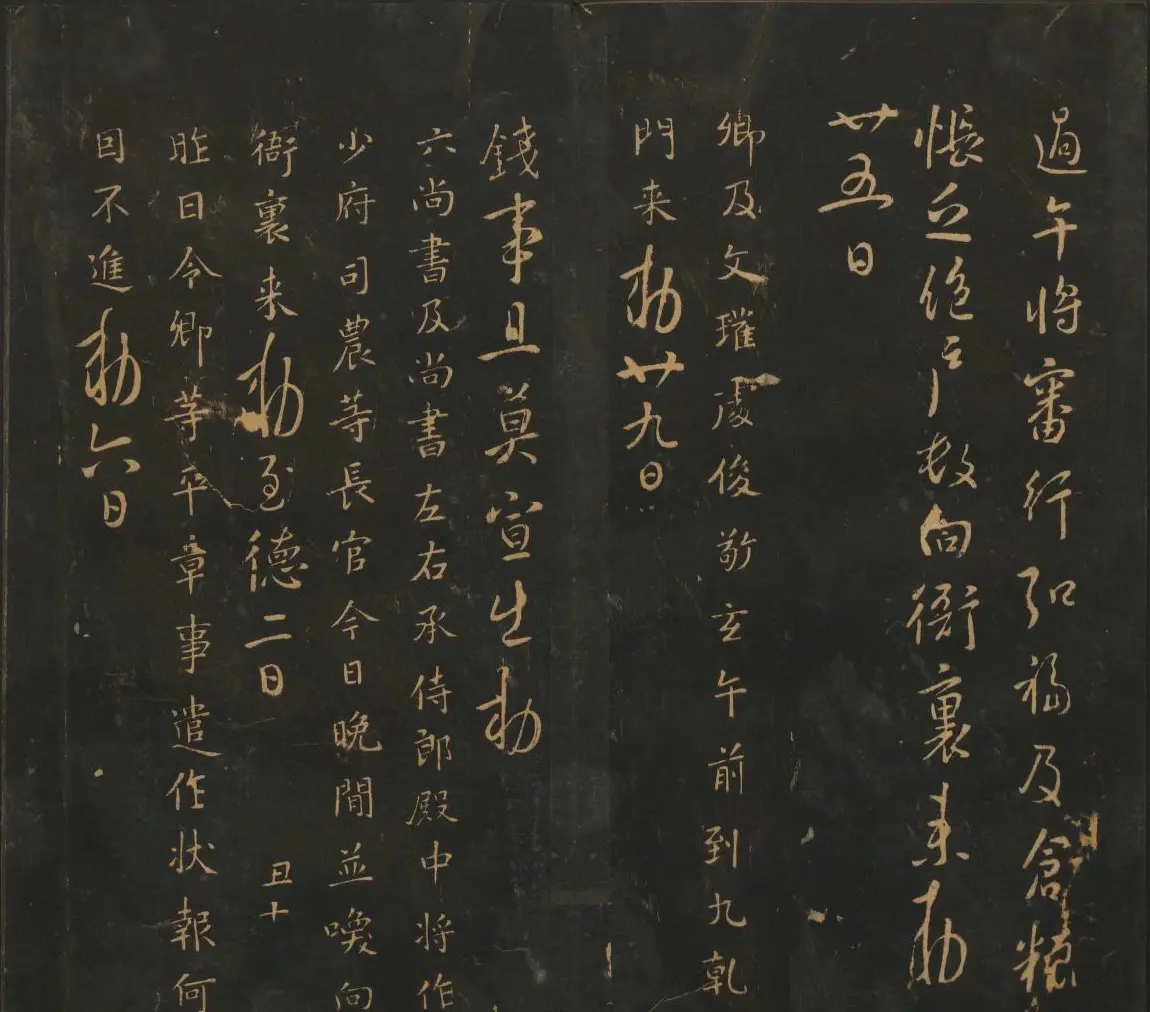 過午将審行弘福及倉粮
帳之绝户数向衙裏来勅
廿五日
卿及文瓘處俊敬玄午前到九乹
門来勅廿九日
錢事且莫宣生勅
六尚書及尚書左右承侍郎殿中将作
少府司農等長官今日晚間並喚向
衙裏来勅 德二日
丑十
昨日令卿等平章事遣作状報何
因不進勅六日